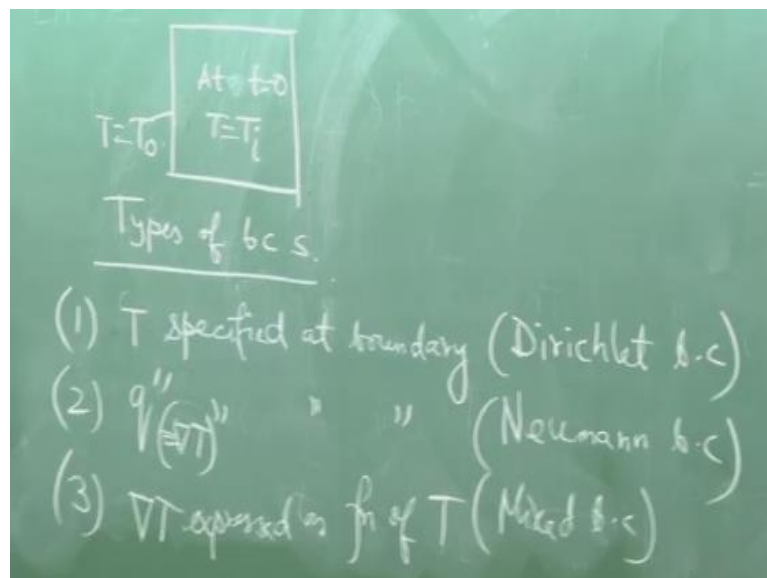 At t=0
T=To.
T=Ti
Types of bc s.
(1) T specified at boundary (Dirichlet b.c)
(2) q" (=∇T) " " " (Neumann b.c)
(3) ∇T expressed as fn of T (Mixed b.c)